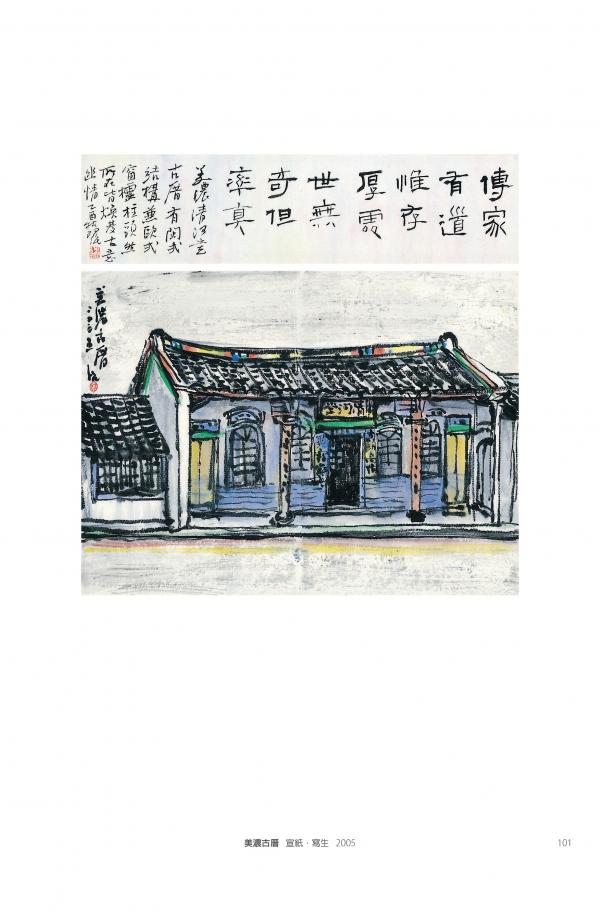 傳家
有道
惟存
厚處
世無
奇但
率真
美濃清河堂
古厝有閩式
結構兼歐式
窗櫺柱頭然
所在皆煥發古意
幽情乙酉
美濃古厝
二〇〇五
美濃古厝 宣紙‧寫生 2005
101